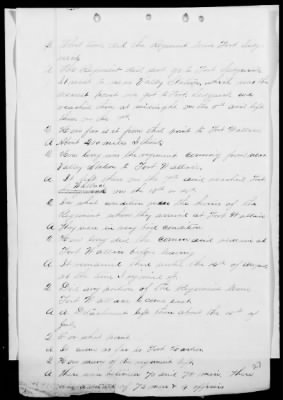 Q What time did the Regiment leave Fort Sedg-
wick
A The Regiment did not go to Fort Sedgwick
It went to near Valley Station, which was the
nearest point we got to Fort Sedgwick. We
reached there at midnight on the and left
there on the
Q How far is it from that point to Fort Wallace
A About 200 miles I think
Q How long was the regiment coming from near
Valley Station to Fort Wallace
A It left there on the and reached Fort
Wallace on the 13th or
Q In what condition were the horses of the
Regiment when they arrived at Fort Wallace
A They were in very poor condition
Q How long did the command remain at
Fort Wallace before leaving
A It remained there until the of August
at the time I rejoined it
Q Did any portion of the Regiment leave
Fort Wallace before that
A A Detachment left there about the 15th of
July
Q For what point
A It came as far as Fort Harker
Q How many of the regiment left
A There were between 70 and 75 men. There
was a detail of 72 men & 4 officers